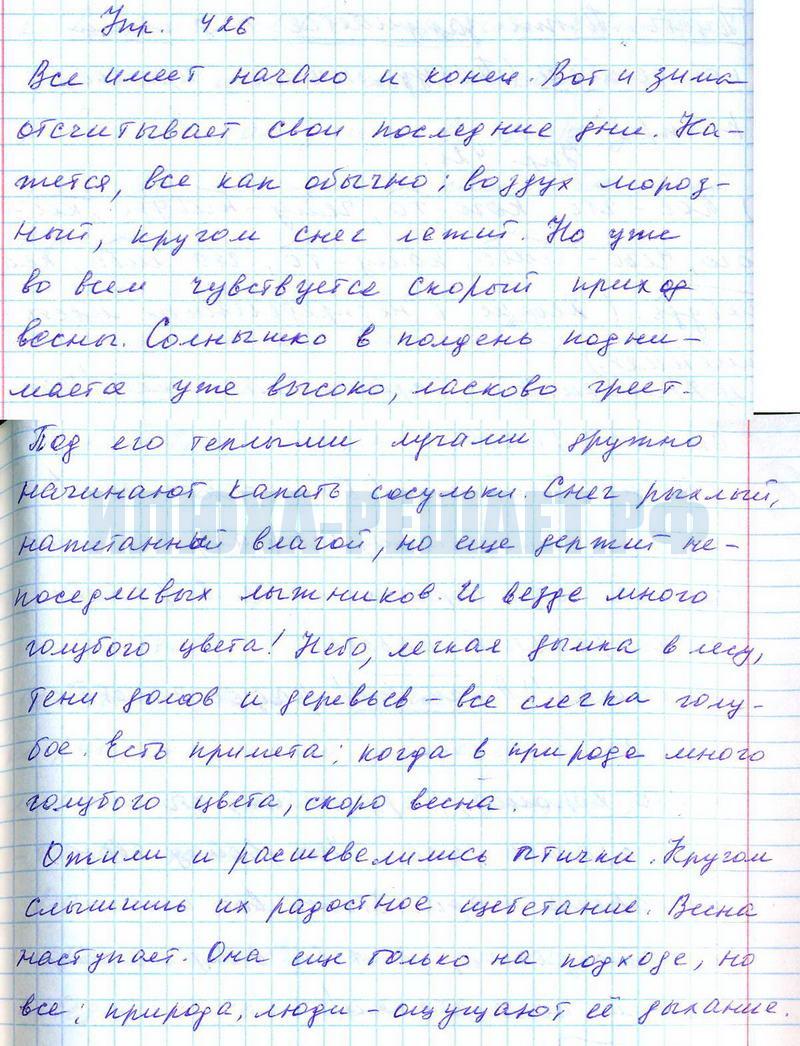 Упр. 426
Все имеет начало и конец. Вот и зима
отсчитывает свои последние дни. Ка-
жется, все как обычно: воздух мороз-
ный, кругом снег лежит. Но уже
во всем чувствуется скорый приход
весны. Солнышко в полдень подни-
мается уже высоко, ласково греет.
Под его теплыми лучами дружно
начинают капать сосульки. Снег рыхлый,
напитанный влагой, но еще держит не-
поседливых лыжников. И везде много
голубого цвета! Небо, легкая дымка в лесу,
тени домов и деревьев – все слегка голу-
бое. Есть примета: когда в природе много
голубого цвета, скоро весна.
Ожили и расшевелились птички. Кругом
слышишь их радостное щебетание. Весна
наступает. Она еще только на подходе, но
все: природа, люди – ощущают её дыхание.
ИНОХА-РЕШАЕТ.РФ